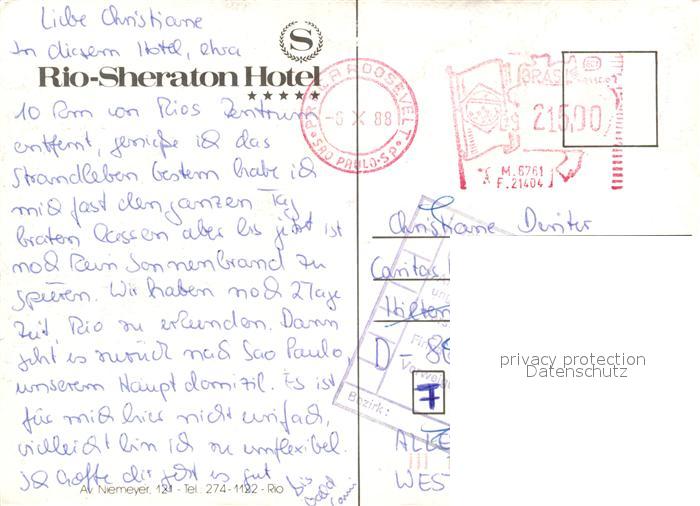 Liebe Christiane
In diesem Hotel, etwa
S
Rio-Sheraton Hotel
10 km von Rios Zentrum
entfernt, genieße ich das
Strandleben bestem habe ich
mich fast den ganzen Tag
braten lassen aber bis jetzt ist
noch kein Sonnenbrand zu
spüren. Wir haben noch 2 Tage
Zeit, Rio zu erkunden. Dann
geht es zurück nach Sao Paulo,
unserem Hauptdomizil. Es ist
für mich hier nicht einfach,
vielleicht bin ich zu unflexibel.
Ich hoffe dir geht es gut
bis bald
Av. Niemeyer, 121 - Tel.: 274-1122 - Rio
ROOSEVELT
-6 X 88
SAO PAULO-S.P.
BRASIL
215,00
M.6761
F.21404
Christiane
Caritas
D-
Bezirk:
7
WEST
privacy protection
Datenschutz